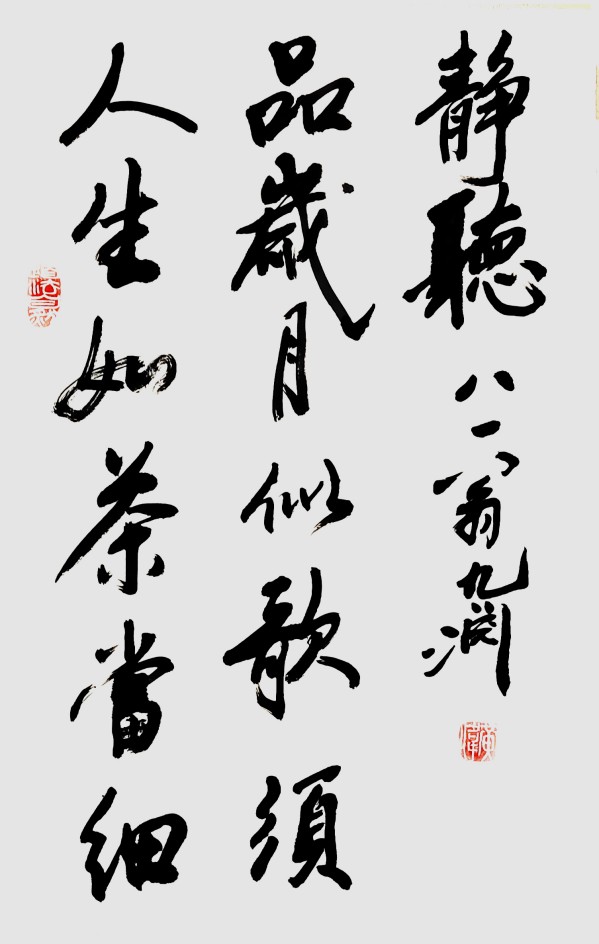 人生如茶當細
品歲月似歌須
靜聽
八六翁九